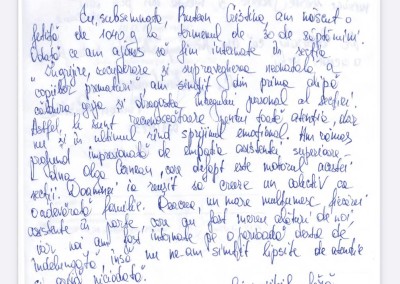 Eu, subsemnata, Cristina, am născut o
fetiță de 1040 g la termenul de 30 de săptămâni.
Odată ce am ajuns să fim internate în secția
"Îngrijire, recuperare și supraveghere neonatală a
copiilor prematuri", am simțit din prima clipă
căldura, grija și dragostea întregului personal al secției.
Astfel, le sunt recunoscătoare pentru toată atenția, dar
nu și în ultimul rând sprijinul emoțional. Am rămas
profund impresionată de empatia asistentei superioare -
dna Olga, care defapt este motorul acestei
secții. Dumneaei a reușit să creeze un colectiv ca
o adevărată familie. Deaceea, un mare mulțumesc fiecărei
asistente în parte care au fost mereu alături de noi,
iar noi am fost internate pe o perioadă destul de
îndelungată, însă nu ne-am simțit lipsite de atenție
și grijă niciodată.